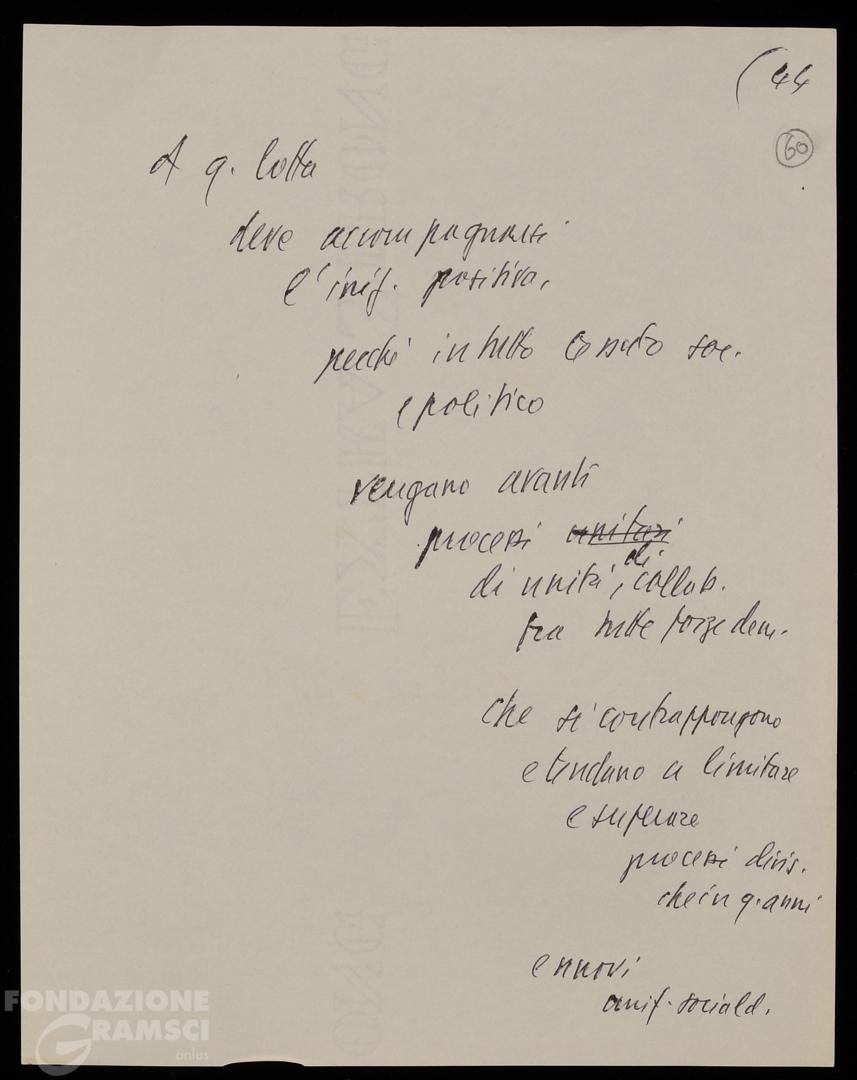 (44
60
A q. lotta
deve accompagnarsi
l'iniz. positiva,
perché in tutto tessuto soc.
e politico
vengano avanti
processi unitari
di unità, di collab.
fra tutte forze dem.
che si contrappongono
e tendano a limitare
e superare
processi divis.
che in q. anni
e nuovi
unif. sociald.
FONDAZIONE
GRAMSCI
onlus